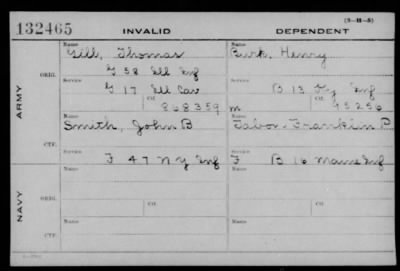 132465 INVALID DEPENDENT (3-H-5)
Name Name
Gill, Thomas Burk, Henry
ARMY
ORIG. G 58 Ill Inf
Service Service
G 17 Ill Cav B 13 Ky Inf
Ctf. 868359 m Ctf. 95256
Name Name
Smith, John B Tabor, Franklin P
CTF. Service Service
F 47 N Y Inf F B 16 Maine Inf
NAVY
Name Name
ORIG.
Ctf. Ctf.
Name Name
CTF.